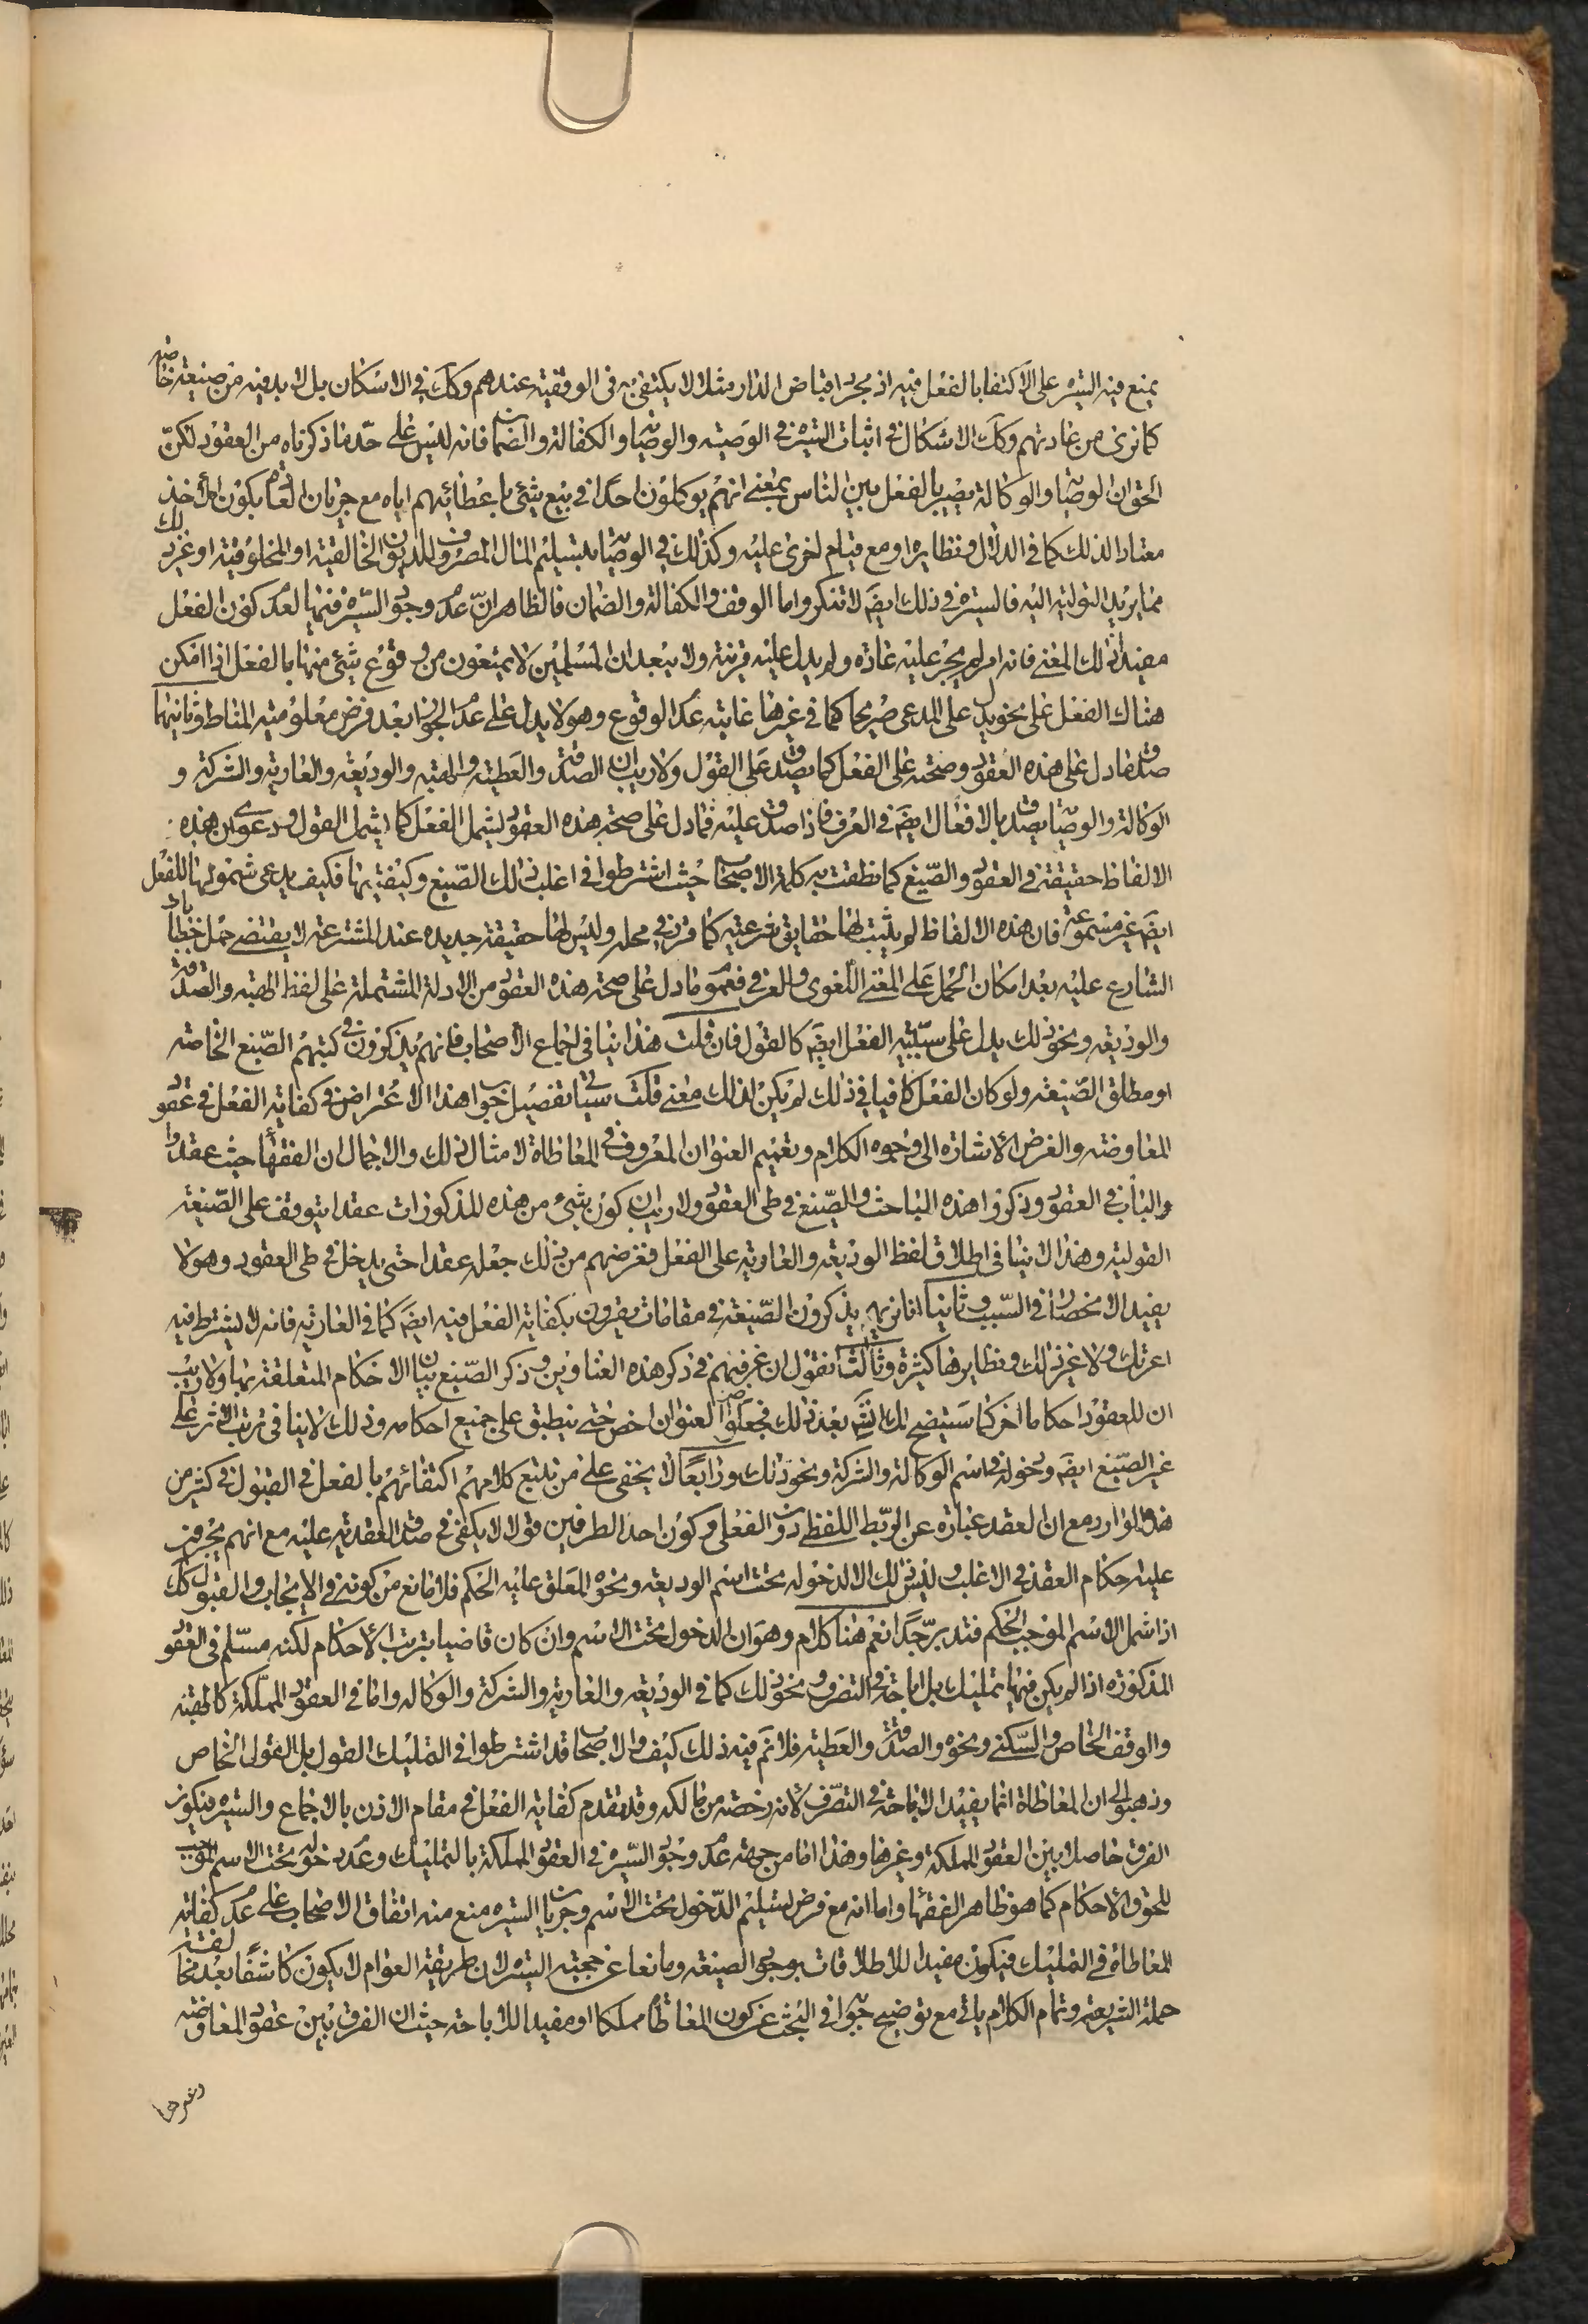 يمنع فيه السيره على الاكتفا بالفعل فيه اذ مجرد اقباض الدار مثلا لا يكتفى به فى الوقفية عندهم وكك فى الاسكان بل لا بد فيه من صيغة خاصه
كما نرى من عادتهم وكك الاشكال فى اثبات السيره فى الوصيه والوصايا والكفالة والضمان فانه ليس على حد ما ذكرناه من العقود لكن
الحق ان الوصايا والوكالة يصير بالفعل بين الناس بمعنى انهم يوكلون احدا فى بيع شئ باعطائهم اياه مع جريان العادة بكون الاخذ
معتادا لذلك كما فى الدلال ونظايره او مع قيام اخرى عليه وكذلك فى الوصايا بتسليم المال المصروف للديون الخالقية او المخلوقية او غير ذلك
مما يريد التولية اليه فالسيره فى ذلك ايضا لا تنكر واما الوقف والكفالة والضمان فالظاهر ان عدم وجود السيره فيها لعدم كون الفعل
مفيدا لذلك المعنى فانه امر لم يجر عليه عادة ولم يدل عليه قرينة ولا يبعد ان المسلمين لا يمتنعون من وقوع شئ منها بالفعل اذا امكن
هناك الفعل على نحو يدل على المدعى صريحا كما فى غيرها غايته عدم الوقوع وهو لا يدل على عدم الجواز بعد فرض معلومية المناط وثانيها
صدق ما دل على هذه العقود وصحته على الفعل كما يصدق على القول ولا ريب ان الصدقة والعطية والهبة والوديعة والعارية والشركة و
الوكالة والوصايا يصدق بالافعال ايضا فى العرف فاذا صدق عليه فما دل على صحة هذه العقود يشمل الفعل كما يشمل القول ودعوى ان هذه
الالفاظ حقيقة فى العقود والصيغ كما نطقت به كلمة الاصحاب حيث اشترطوا فى اغلب ذلك الصيغ وكيفيتها فكيف يدعى شمولها للفعل
ايضا غير مسموعة فان هذه الالفاظ لم يثبت لها حقايق شرعية كما قرر فى محله وليس لها حقيقة جديده عند المتشرعة لا يقتضى حمل خطاباته
الشارع عليه بعد امكان الحمل على المعنى اللغوى والعرفى فعموم ما دل على صحة هذه العقود من الادلة المشتملة على لفظ الهبة والصدقة
والوديعة ونحو ذلك يدل على سببية الفعل ايضا كالقول فان قلت هذا ينافى اجماع الاصحاب فانهم يذكرون فى كتبهم الصيغ الخاصه
او مطلق الصيغة ولو كان الفعل كافيا فى ذلك لم يكن لذلك معنى قلت سيأتى تفصيل جواب هذا الاعتراض فى كفاية الفعل فى عقود
المعاوضة والغرض الاشاره الى وجوه الكلام وتعميم العنوان المعروف فى المعاطاة لامثال ذلك والاجمال ان الفقهاء حيث عقدوا
والباب فى العقود وذكروا هذه المباحث والصيغ فى طى العقود ولا ريب ان كون شئ من هذه المذكورات عقدا يتوقف على الصيغة
القولية وهذا لا ينافى اطلاق لفظ الوديعة والعارية على الفعل فغرضهم من ذلك جعله عقدا حتى يدخل فى طى العقود وهو لا
يفيد الانحصار فى السبب وثانيا انا نريهم يذكرون الصيغة فى مقامات يقرون بكفاية الفعل فيه ايضا كما فى العارية فانه لا يشترط فيه
اعرتك ولا غير ذلك ونظايرها كثيرة وثالثا نقول ان غرضهم فى ذكر هذه العناوين وذكر الصيغ بيان الاحكام المتعلقة بها ولا ريب
ان للعقود احكاما اخر كما سيتضح لك انشاء الله بعد ذلك فجعلوا العنوان اخص حتى ينطبق على جميع احكامه وذلك لا ينافى ترتب الاثر على
غير الصيغ ايضا ودخوله فى اسم الوكالة والشركة ونحو ذلك ورابعا لا يخفى على من تتبع كلامهم اكتفائهم بالفعل فى القبول فى كثير من
هذه الموارد مع ان العقد عبارة عن الربط اللفظى دون الفعلى وكون احد الطرفين قولا لا يكفى فى صدق العقدية عليه مع انهم يجرون
عليه احكام العقد فى الاغلب وليس ذلك الا لدخوله تحت اسم الوديعة ونحوه المعلق عليه الحكم فلا مانع من كونه فى الايجاب والقبول كك
اذا شمل الاسم الموجب للحكم فتدبر جدا نعم هنا كلام وهو ان الدخول تحت الاسم وان كان قاضيا بترتب الاحكام لكنه مسلم فى العقود
المذكوره اذا لم يكن فيها تمليك بل اباحة فى التصرف ونحو ذلك كما فى الوديعة والعارية والشركة والوكالة واما فى العقود المملكة كالهبة
والوقف الخاص والسكنى ونحوه والصدقة والعطية فلا نم فيه ذلك كيف والاصحاب قد اشترطوا فى التمليك القول بل القول الخاص
وذهبوا الى ان المعاطاة انما يفيد الاباحة فى التصرف لانه رخصة من مالكه وقد تقدم كفاية الفعل فى مقام الاذن بالاجماع والسيره فيكون
الفرق حاصلا بين العقود المملكة وغيرها وهذا اما من جهة عدم وجود السيره فى العقود المملكة بالتمليك وعدم دخوله تحت الاسم الموجب
للحوق الاحكام كما هو ظاهر الفقهاء واما انه مع فرض تسليم الدخول تحت الاسم وجريان السيره منع منه اتفاق الاصحاب على عدم كفاية
المعاطاة فى التمليك فيكون مفيدا للاطلاقات بوجود الصيغة ومانعا عن حجية السيره لان طريقة العوام لا يكون كاشفا بعد مخالفة
حملة الشريعة وتمام الكلام يأتى مع توضيح جوابه فى البحث عن كون المعاطاة مملكا او مفيدا للاباحة حيث ان الفرق بين عقود المعاوضه
وغيرها